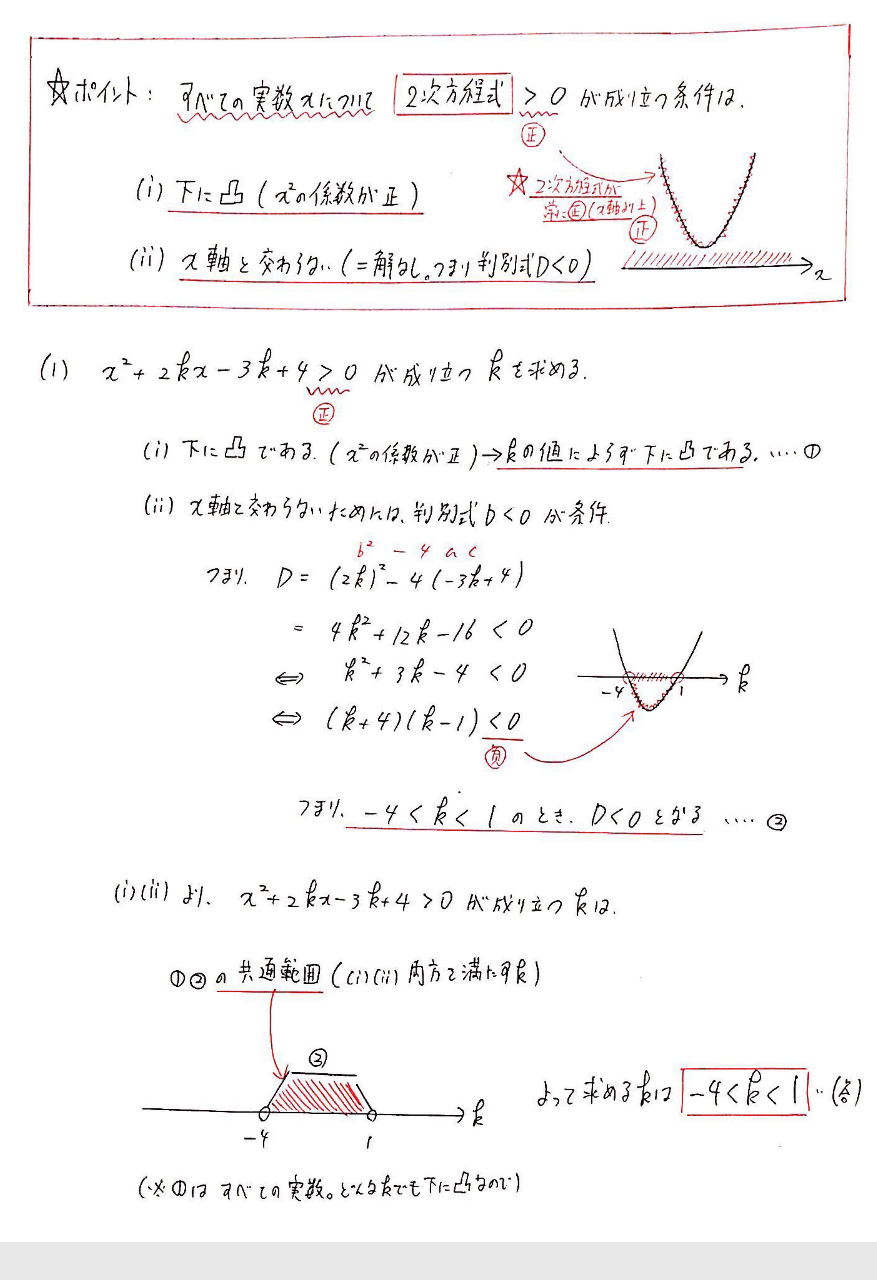 ☆ポイント: すべての実数xについて 2次方程式 > 0 が成り立つ条件は、
正
(i) 下に凸 (x²の係数が正)
☆ 2次方程式が
常に正(x軸より上)
正
(ii) x軸と交わらない (=解なし。つまり判別式D<0)
x
(1) x²+2kx-3k+4 > 0 が成り立つ k を求める.
正
(i) 下に凸である. (x²の係数が正)→kの値によらず下に凸である. ....①
(ii) x軸と交わらないためには、判別式 D<0 が条件.
b² - 4ac
つまり、 D = (2k)² - 4(-3k+4)
= 4k²+12k-16 < 0
⇔ k²+3k-4 < 0
-4 1 k
⇔ (k+4)(k-1) < 0
負
つまり、 -4 < k < 1 のとき. D<0 となる ....②
(i)(ii) より、 x²+2kx-3k+4 > 0 が成り立つ kは.
①②の共通範囲 ((i)(ii) 両方で満たすk)
②
よって求めるkは -4<k<1 ..(答)
-4 1 k
(※①は すべての実数。どんなkでも下に凸なので)